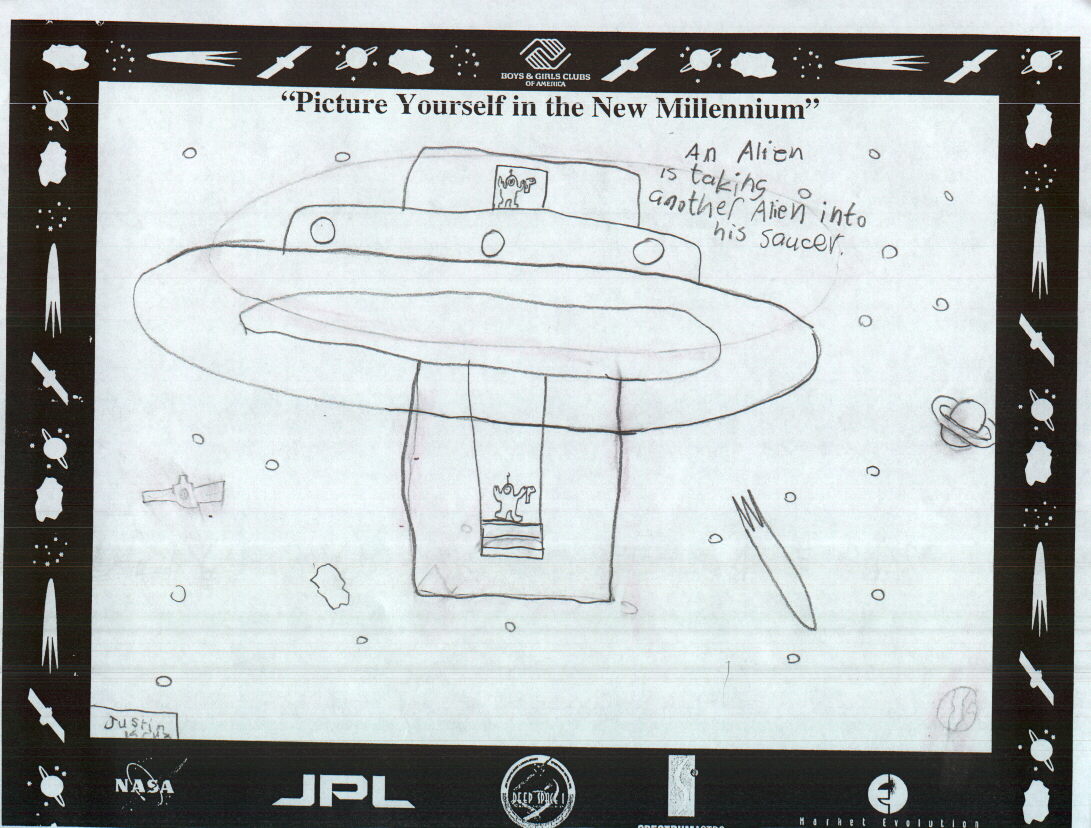 BOYS & GIRLS CLUBS
OF AMERICA
“Picture Yourself in the New Millennium”
An Alien
is taking
another Alien into
his saucer.
Justin
NASA
JPL
DEEP SPACE 1
Market Evolution